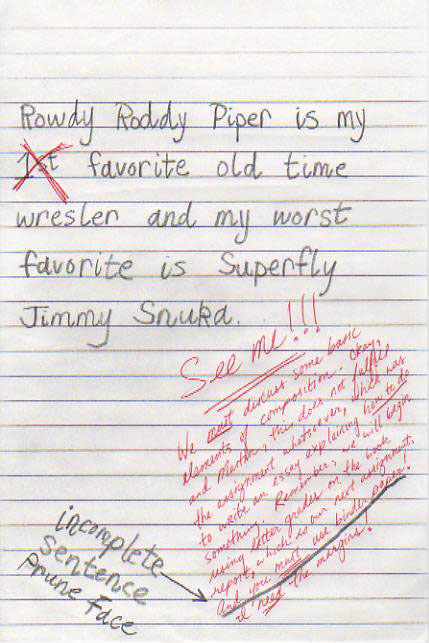 Rowdy Roddy Piper is my
1st favorite old time
wresler and my worst
favorite is Superfly
Jimmy Snuka.
See me!!!
We must discuss some basic
elements of composition. Okay,
and Martin, this does not fulfill
the assignment whatsoever, which was
to write an essay explaining how to do
something. Remember, we will begin
using letter grades on the book
report, which is our next assignment.
And you must use binder paper!
I need the margins!
incomplete
sentence
Prune Face